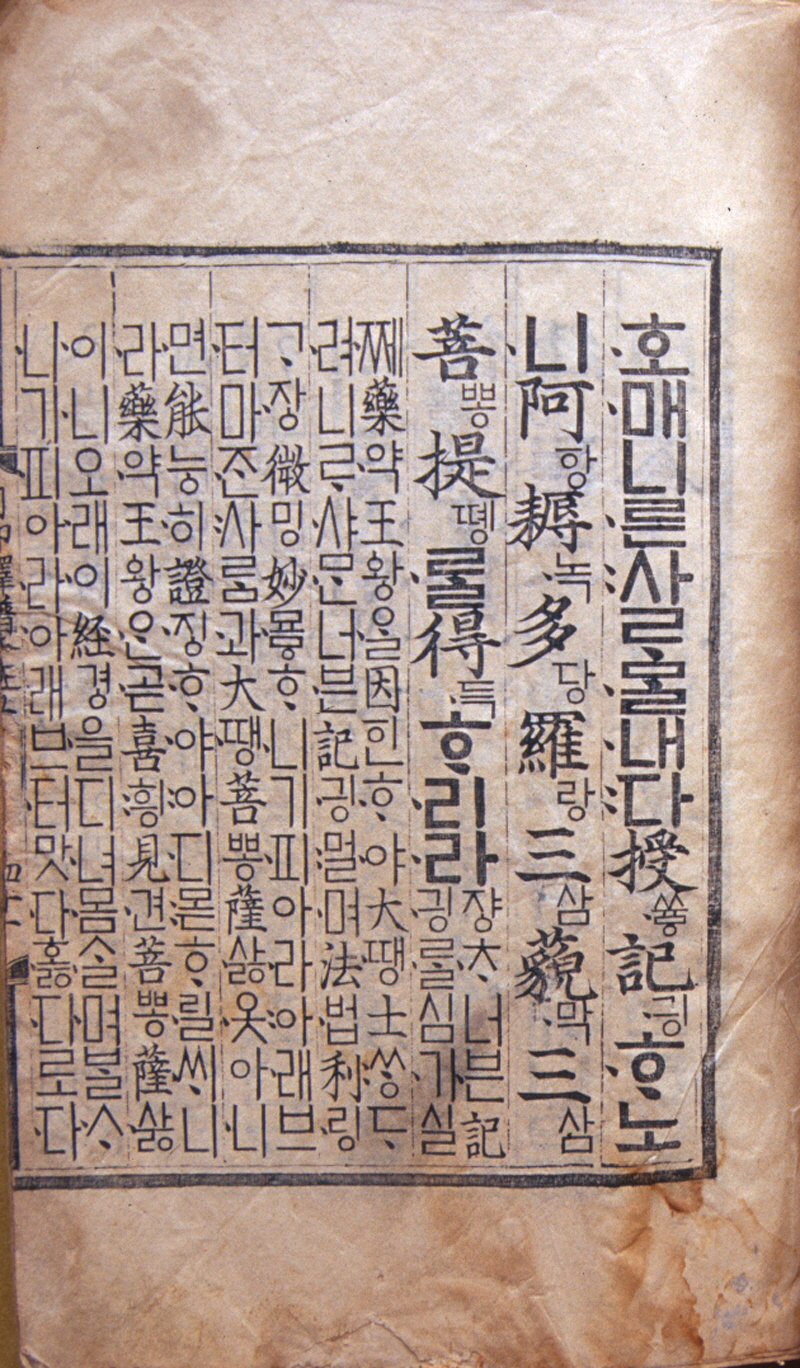 호매니른사ᄅᆞᄆᆞᆯ내다授쓔ᇢ記긩ᄒᆞ노
니阿항耨녹多당羅랑三삼藐막三삼
菩뽕提똉ᄅᆞᆯ得득ᄒᆞ리라
쟝ᄎᆞ너븐記
긩ᄅᆞᆯ심기실
쩨藥약王왕ᄋᆞᆯ因힌ᄒᆞ야大땡士ᄊᆞᆼᄃᆞ
려니ᄅᆞ샤ᄆᆞᆫ너븐記긩멀며法법利링
ᄀᆞ장微밍妙묘ᇢᄒᆞ니기피아라아래브
터마ᄌᆞᆫ사ᄅᆞᆷ과大땡菩뽕薩사ᇙ옷아니
면能능히證징ᄒᆞ야아디몯ᄒᆞ릴ᄊᆡ니
라藥약王왕ᄋᆞᆫ곧喜힁見견菩뽕薩사ᇙ
이니오래이経경을디녀몸ᄉᆞᆯ며ᄇᆞᆯᄉᆞ
니기피아라아래브터맛다ᄒᆞᇙ다로다